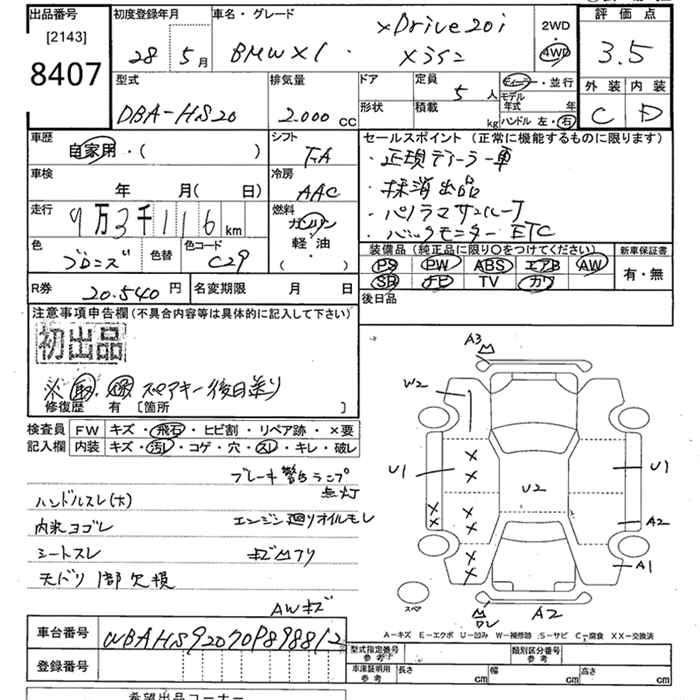 出品番号
[2143]
8407
初度登録年月
28 5月
車名・グレード
BMW X1 ・
xDrive20i
xライン
2WD
4WD
評価点
3.5
外装 内装
C D
型式
DBA-HS20
排気量
2.000 CC
ドア
形状
定員
5人
積載
kg
ディーラー・並行
モデル
年式 年
ハンドル 左・右
車歴
自家用・( )
シフト
FA
車検
年 月( 日)
冷房
AAC
走行
9万3千116km
燃料
ガソリン
軽・油
( )
色
ブロンズ
色替
色コード
C29
R券
20.540円
名変期限 月 日
セールスポイント(正常に機能するものに限ります)
・正規ディーラー車
・抹消出品
・パノラマサンルーフ
・バックモニター ETC
装備品(純正品に限り○をつけてください)
PS PW ABS エアB AW
SR ナビ TV カワ
新車保証書
有・無
後日品
注意事項申告欄(不具合内容等は具体的に記入して下さい)
初出品
※ 取、 スペアキー後日送り
修復歴 有 [箇所 ]
検査員
記入欄
FW キズ・飛石・ヒビ割・リペア跡・×要
内装 キズ・汚レ・コゲ・穴・スレ・キレ・破レ
ブレーキ警告ランプ
点灯
ハンドルスレ(大)
エンジン廻りオイルモレ
内装ヨゴレ
シートスレ
キズ凹アリ
天バリ 1部欠損
AWキズ
A3
W2
U1
U2
U1
A2
A1
スペア
A2
A-キズ E-エクボ U-凹み W-補修跡 S-サビ C-腐食 XX-交換済
車台番号
WBAHS92070P898812
登録番号
型式指定番号
参考
類別区分番号
参考
車庫証明用
参考
長さ cm
幅 cm
高さ cm
希望出品コーナー